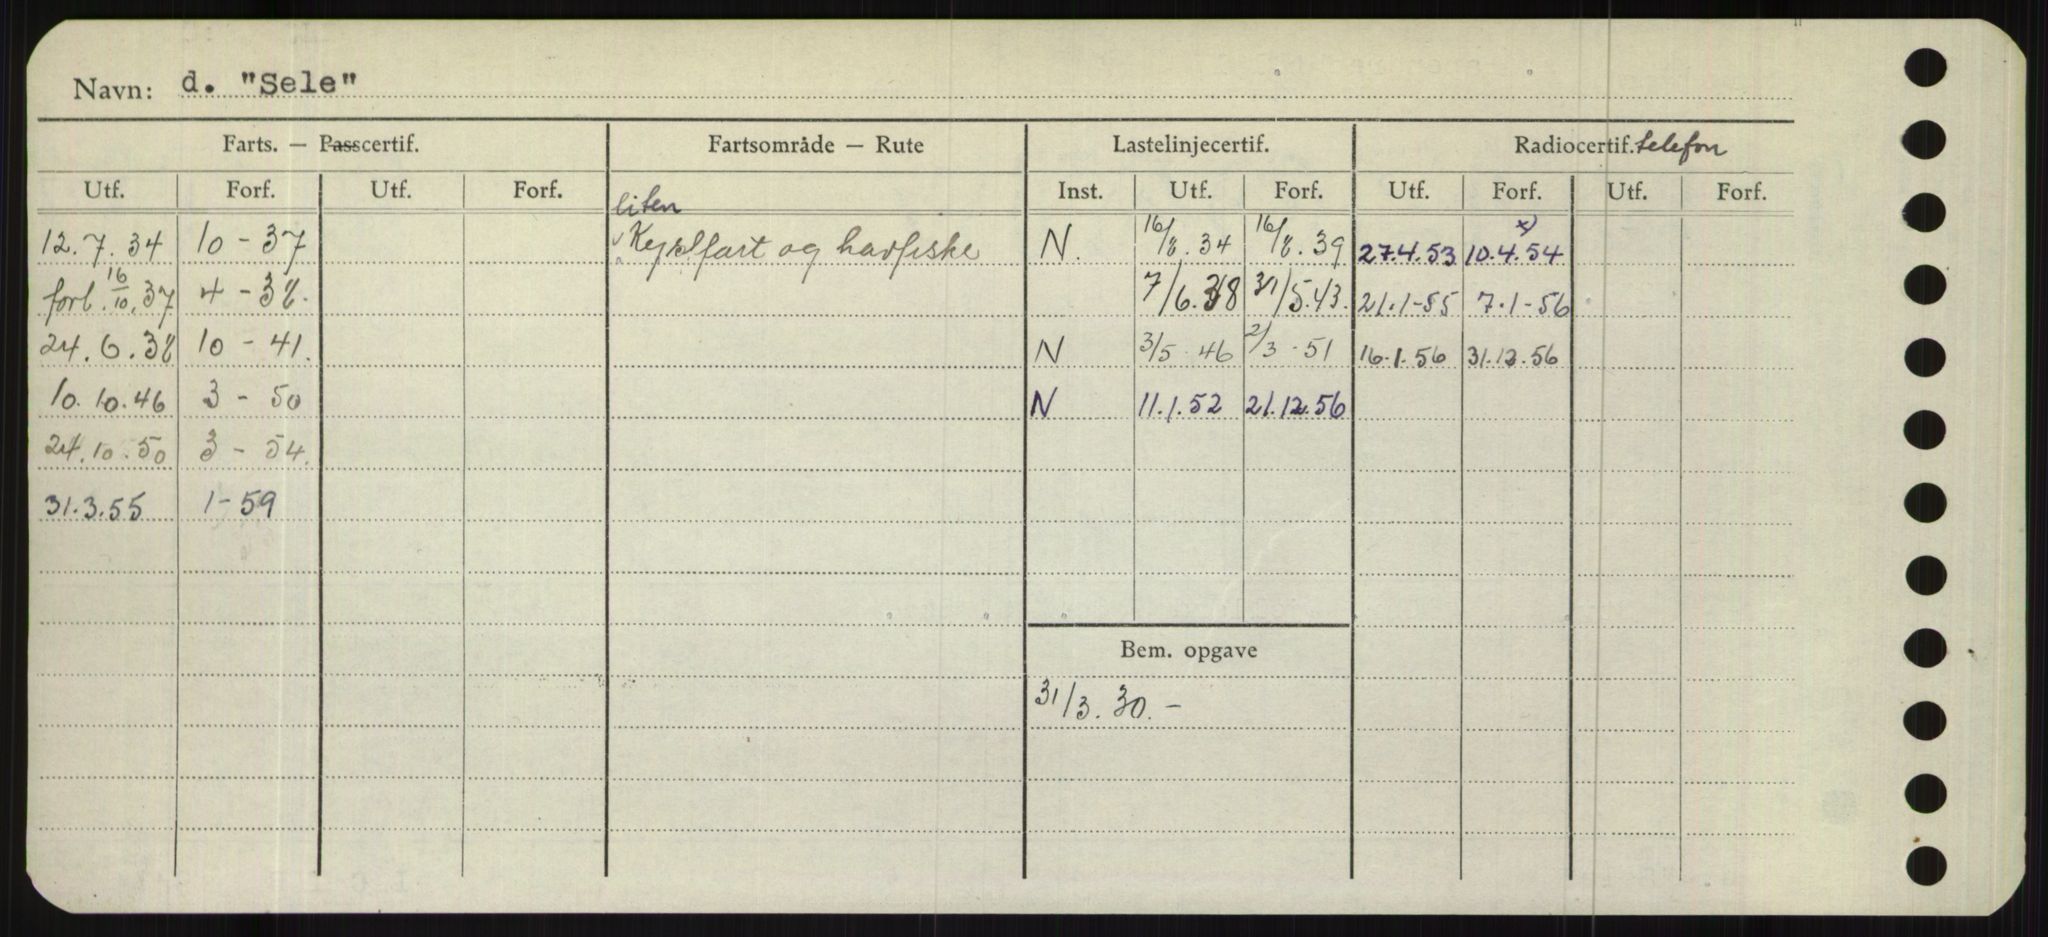 Navn: d. "Sele"
Farts. — Passcertif. Fartsområde — Rute Lastelinjecertif. Radiocertif. telefon
Utf. Forf. Utf. Forf. Inst. Utf. Forf. Utf. Forf. Utf. Forf.
liten
12.7.34 10-37 Kystfart og havfiske N. 16/8.34 16/8.39 27.4.53 10.4.54 x)
forl. 16/10.37 4-38. 7/6.38 31/5.43. 21.1-55 7.1-56
24.6.38 10-41. N 3/5.46 2/3-51 16.1.56 31.12.56
10.10.46 3-50 N 11.1.52 21.12.56
24.10.50 3-54.
31.3.55 1-59
Bem. opgave
31/3.30.-